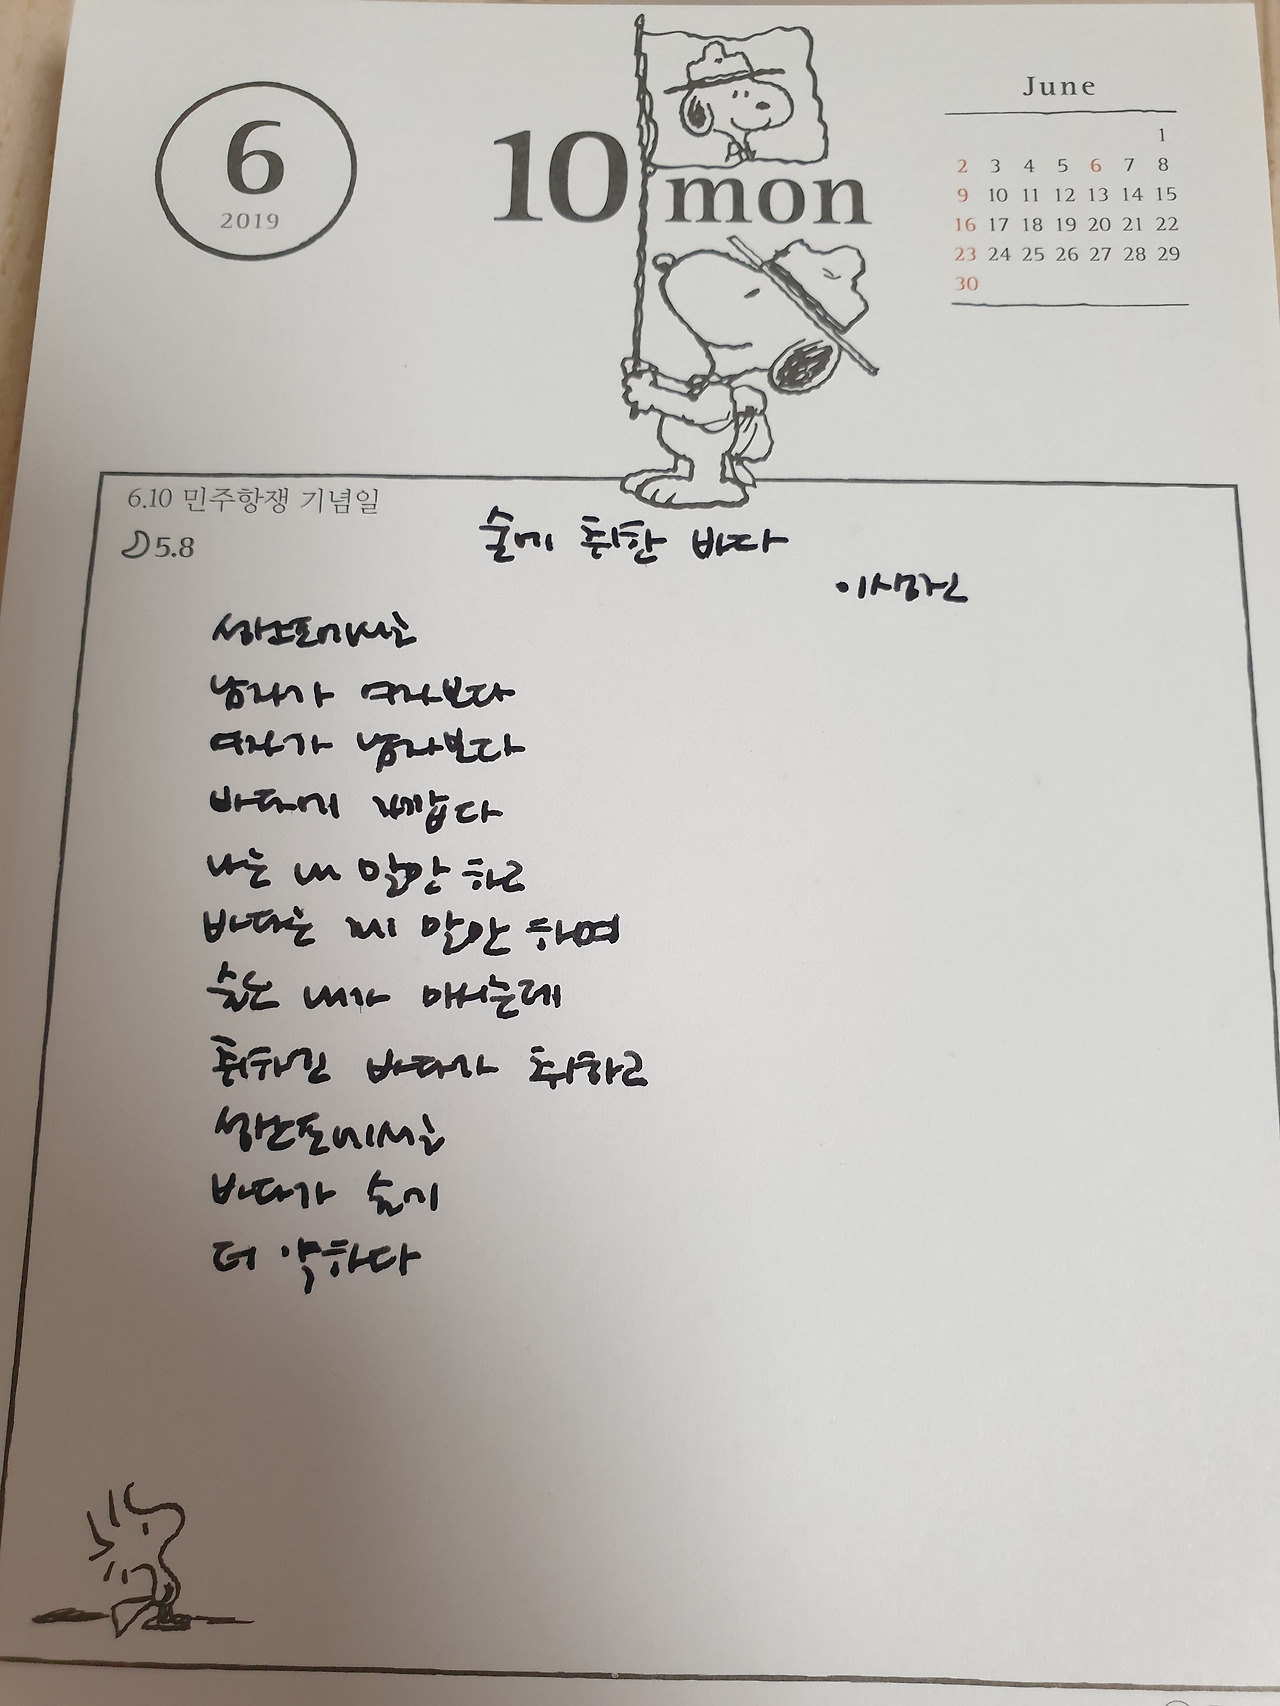 6
2019
10 mon
June
1
2 3 4 5 6 7 8
9 10 11 12 13 14 15
16 17 18 19 20 21 22
23 24 25 26 27 28 29
30
6.10 민주항쟁 기념일
5.8
술에 취한 바다
이생진
성산포에서는
남자가 여자보다
여자가 남자보다
바다에 가깝다
나는 내 말만 하고
바다는 제 말만 하며
술은 내가 마시는데
취하긴 바다가 취하고
성산포에서는
바다가 술에
더 약하다